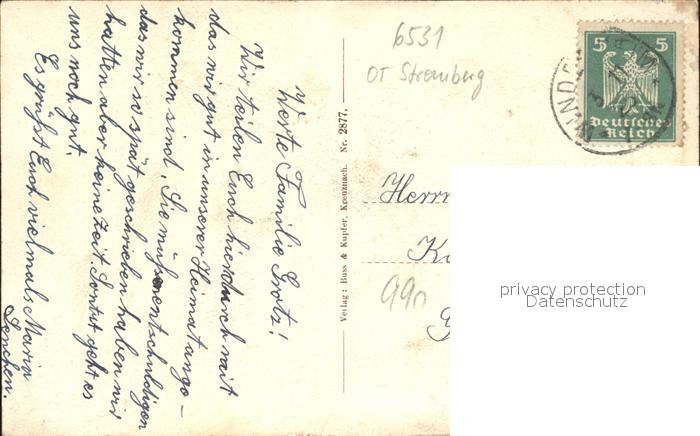 Werte Familie Grotz!
Wir teilen Euch hierdurch mit
das wir gut in unserer Heimat ange-
kommen sind. Sie müssen entschuldigen
das wir so spät geschrieben haben wir
hatten aber keine Zeit. Sonst geht es
uns noch gut.
Es grüßt Euch vielmals Maria
Verlag: Buss & Kupfer, Kreuznach. Nr. 2877.
6531
OT Stromberg
5 5
Deutsches
Reich
Herrn
99n
privacy protection
Datenschutz